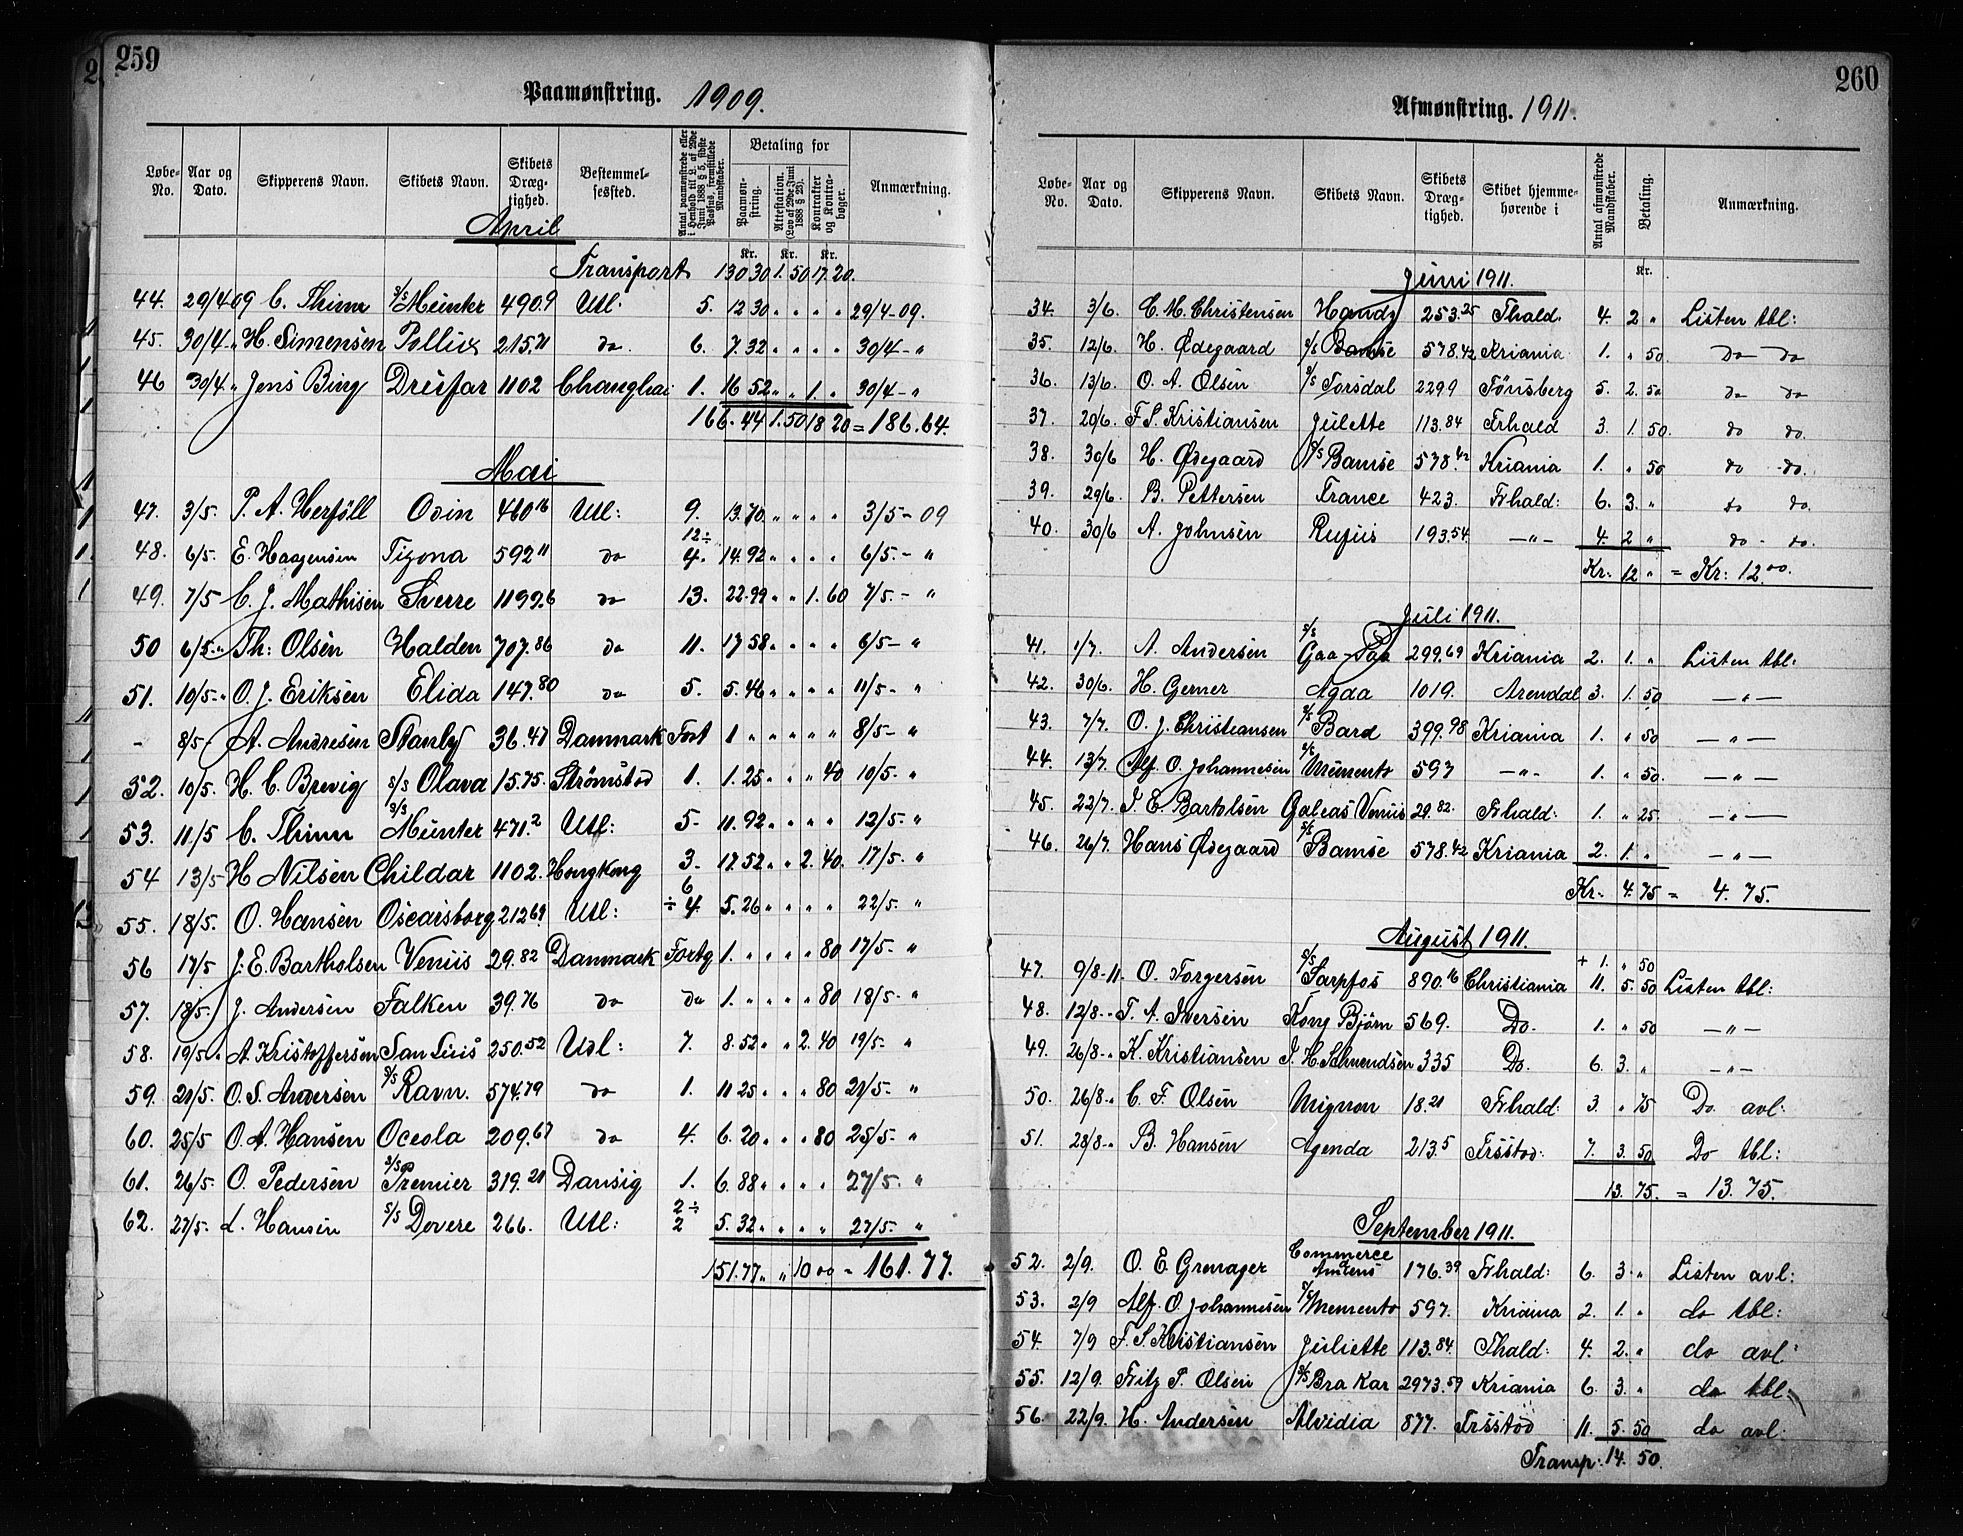 259
Paamønstring. 1909.
Løbe-No. Aar og Dato. Skipperens Navn. Skibets Navn. Skibets Dræg-tighed. Bestemmel-sessted. Antal paamønstrede eller i Henhold til L. af 29de Juni 1888 § 5, sidste Passus fremstillede Mandskaber. Betaling for Paamøn-string. Attestation. (Lov af 29de Juni 1888 § 28). Kontrakter og Kontra-bøger. Anmærkning.
April
Kr. Kr. Kr.
Transport 130 30 1. 50 17. 20.
44. 29/4 09 C. Thinn S/S Münter 490.9 Utl: 5. 12 30 " " " " 29/4-09.
45. 30/4-" H. Simensen Pollux 215.71 do. 6. 7. 32 " " " " 30/4-"
46 30/4." Jens Bing Dreifar 1102 Changhai 1. 16 52 " " 1. " 30/4-"
166.44 1.50 18 20 = 186.64.
Mai
47. 3/5. P. A. Herföll Ovin 460 16 Utl: 9. 13.70 " " " " 3/5-09
48. 6/5. E. Haagensen Tigona 592 11 do 12÷ 4. 14.92 " " " " 6/5.-"
49. 7/5 C. J. Mathisen Sverre 1199.6 do 13. 22.99 " " 1. 60 7/5.-"
50 6/5-" Th: Olsen Halden 707.86 do 11. 17 58 " " " " 6/5- "
51. 10/5-" O. J. Eriksen Elida 147.80 do 5. 5.46 " " " " 11/5- "
- 8/5 A. Andresen Stanly 36.47 Danmark Fort 1 " " " " " 8/5- "
52. 10/5. H. C. Brevig S/S Olava 15.75. Strømstod 1. 1.25 " " " 40 10/5. "
53. 11/5 C. Thinn S/S Münter 471.2 Utl: 5- 11.92 " " " " 12/5. "
54 13/5- H Nilsen Childar 1102. Hongkong 3. 17.52 " " 2. 40. 17/5. "
55. 18/5. O. Hansen Oscarsborg 212 69 Utl: 6 ÷ 4. 5.26 " " " " 22/5. "
56 17/5 J. E. Bartholsen Venüs 29.82 Danmark Fortg 1. " " " " 80 17/5- "
57. 18/5. J. Andersen Falken 39.76 do do 1. " " " " 80 18/5- "
58. 19/5 " A. Kristoffersen San Luis 250.52 Utl: 7. 8.52 " " 2. 40 19/5. "
59. 21/5. O. S. Andersen S/S Ravn. 574.79 do 1. 11 25 " " " 80 21/5- "
60. 25/5 O. A. Hansen Oceola 209.67 do 4. 6. 20 " " " 80 25/5- "
61. 26/5. O. Pedersen S/S Premier 319.21 Dansig 1. 6.88 " " " " 27/5. "
62. 27/5- L. Hansen S/S Dovere 266. Utl: 2÷ 2 5.32 " " " " 27/5- "
151.77 " " 10 00 = 161.77.
260
Afmønstring. 1911.
Løbe-No. Aar og Dato. Skipperens Navn. Skibets Navn. Skibets Dræg-tighed. Skibet hjemme-hørende i Antal afmønstrede Mandskaber. Betaling. Anmærkning.
Kr.
Juni 1911.
34. 3/6. C. M. Christensen Handy 253.25 Fhald. 4. 2 " Listen tbl:
35. 12/6. H. Ødegaard S/S Bamse 578.42 Kriania 1. " 50. do do
36. 13/6. O. A. Olsen S/S Torsdal 2299 Tönsberg 5. 2. 50 do do
37. 20/6. F. S. Kristiansen Julette 113.84 Frhald 3. 1. 50. do do.
38. 30/6 H. Ødegaard S/S Bamse 578.42 Kriania 1. " 50 do do.
39. 29/6. B. Pettersen France 423. Frhald: 6. 3. " do do.
40. 30/6 A. Johnsen Rufus 193.54. -"- 4. 2 " do- do.
Kr: 12 " = Kr: 12.00.
Juli 1911.
41. 1/7. A. Andersen S/S Gaa-Paa 299.69 Kriania 2. 1. " Listen tbl:
42. 30/6. H. Gerner Agda 1019. Arendal 3. 1. 50 -"-
43. 7/7. O. J. Christiansen S/S Bard 399.98 Kriania 1. " 50 -"-
44. 13/7. Alf. O. Johannesen S/S Memento 597 -"- 1. " 50. -"-
45. 22/7. J. E. Bartolsen Galeas Venüs 29.82. Frhald: 1. " 25. -"-
46. 26/7. Hans Ødegaard S/S Bamse 578.42 Kriania 2. 1. " -"-
Kr. 4. 75 = 4. 75.
August 1911.
+ 1. " 50
47. 9/8-11. O. Torgersen S/S Sarpfos 890.16 Christiania 11. 5. 50 Listen tbl:
48. 12/8-" T. A. Iversen Kong Bjørn 569. Do. 1. " 50 -"-
49. 26/8-" K. Kristiansen 335 Do. 6. 3. " -"-
50. 26/8-" C. F. Olsen Mignon 18.21 Frhald: 3. " 75 Do avl:
51. 28/8-" B. Hansen Agenda 213.5 Frsstod: 7. 3. 50 Do tbl:
13. 75. = 13. 75.
September 1911.
52. 2/9. O. E. Grenager Commerce 176.39 Frhald: 6. 3. " Listen avl:
53. 2/9 Alf. O. Johannesen S/S Memento 597. Kriania 2. 1. " do tbl:
54. 7/9 F. S Kristiansen Juliette 113.84. Fhald: 4. 2. " do avl:
55. 12/9. Fritz P. Olsen S/S Bra Kar 2973.59 Kriania 6. 3. " do tbl:
56. 22/9. H. Andersen Alvidia 877. Frsstod 11. 5. 50 do avl:
Transp: 14. 50.